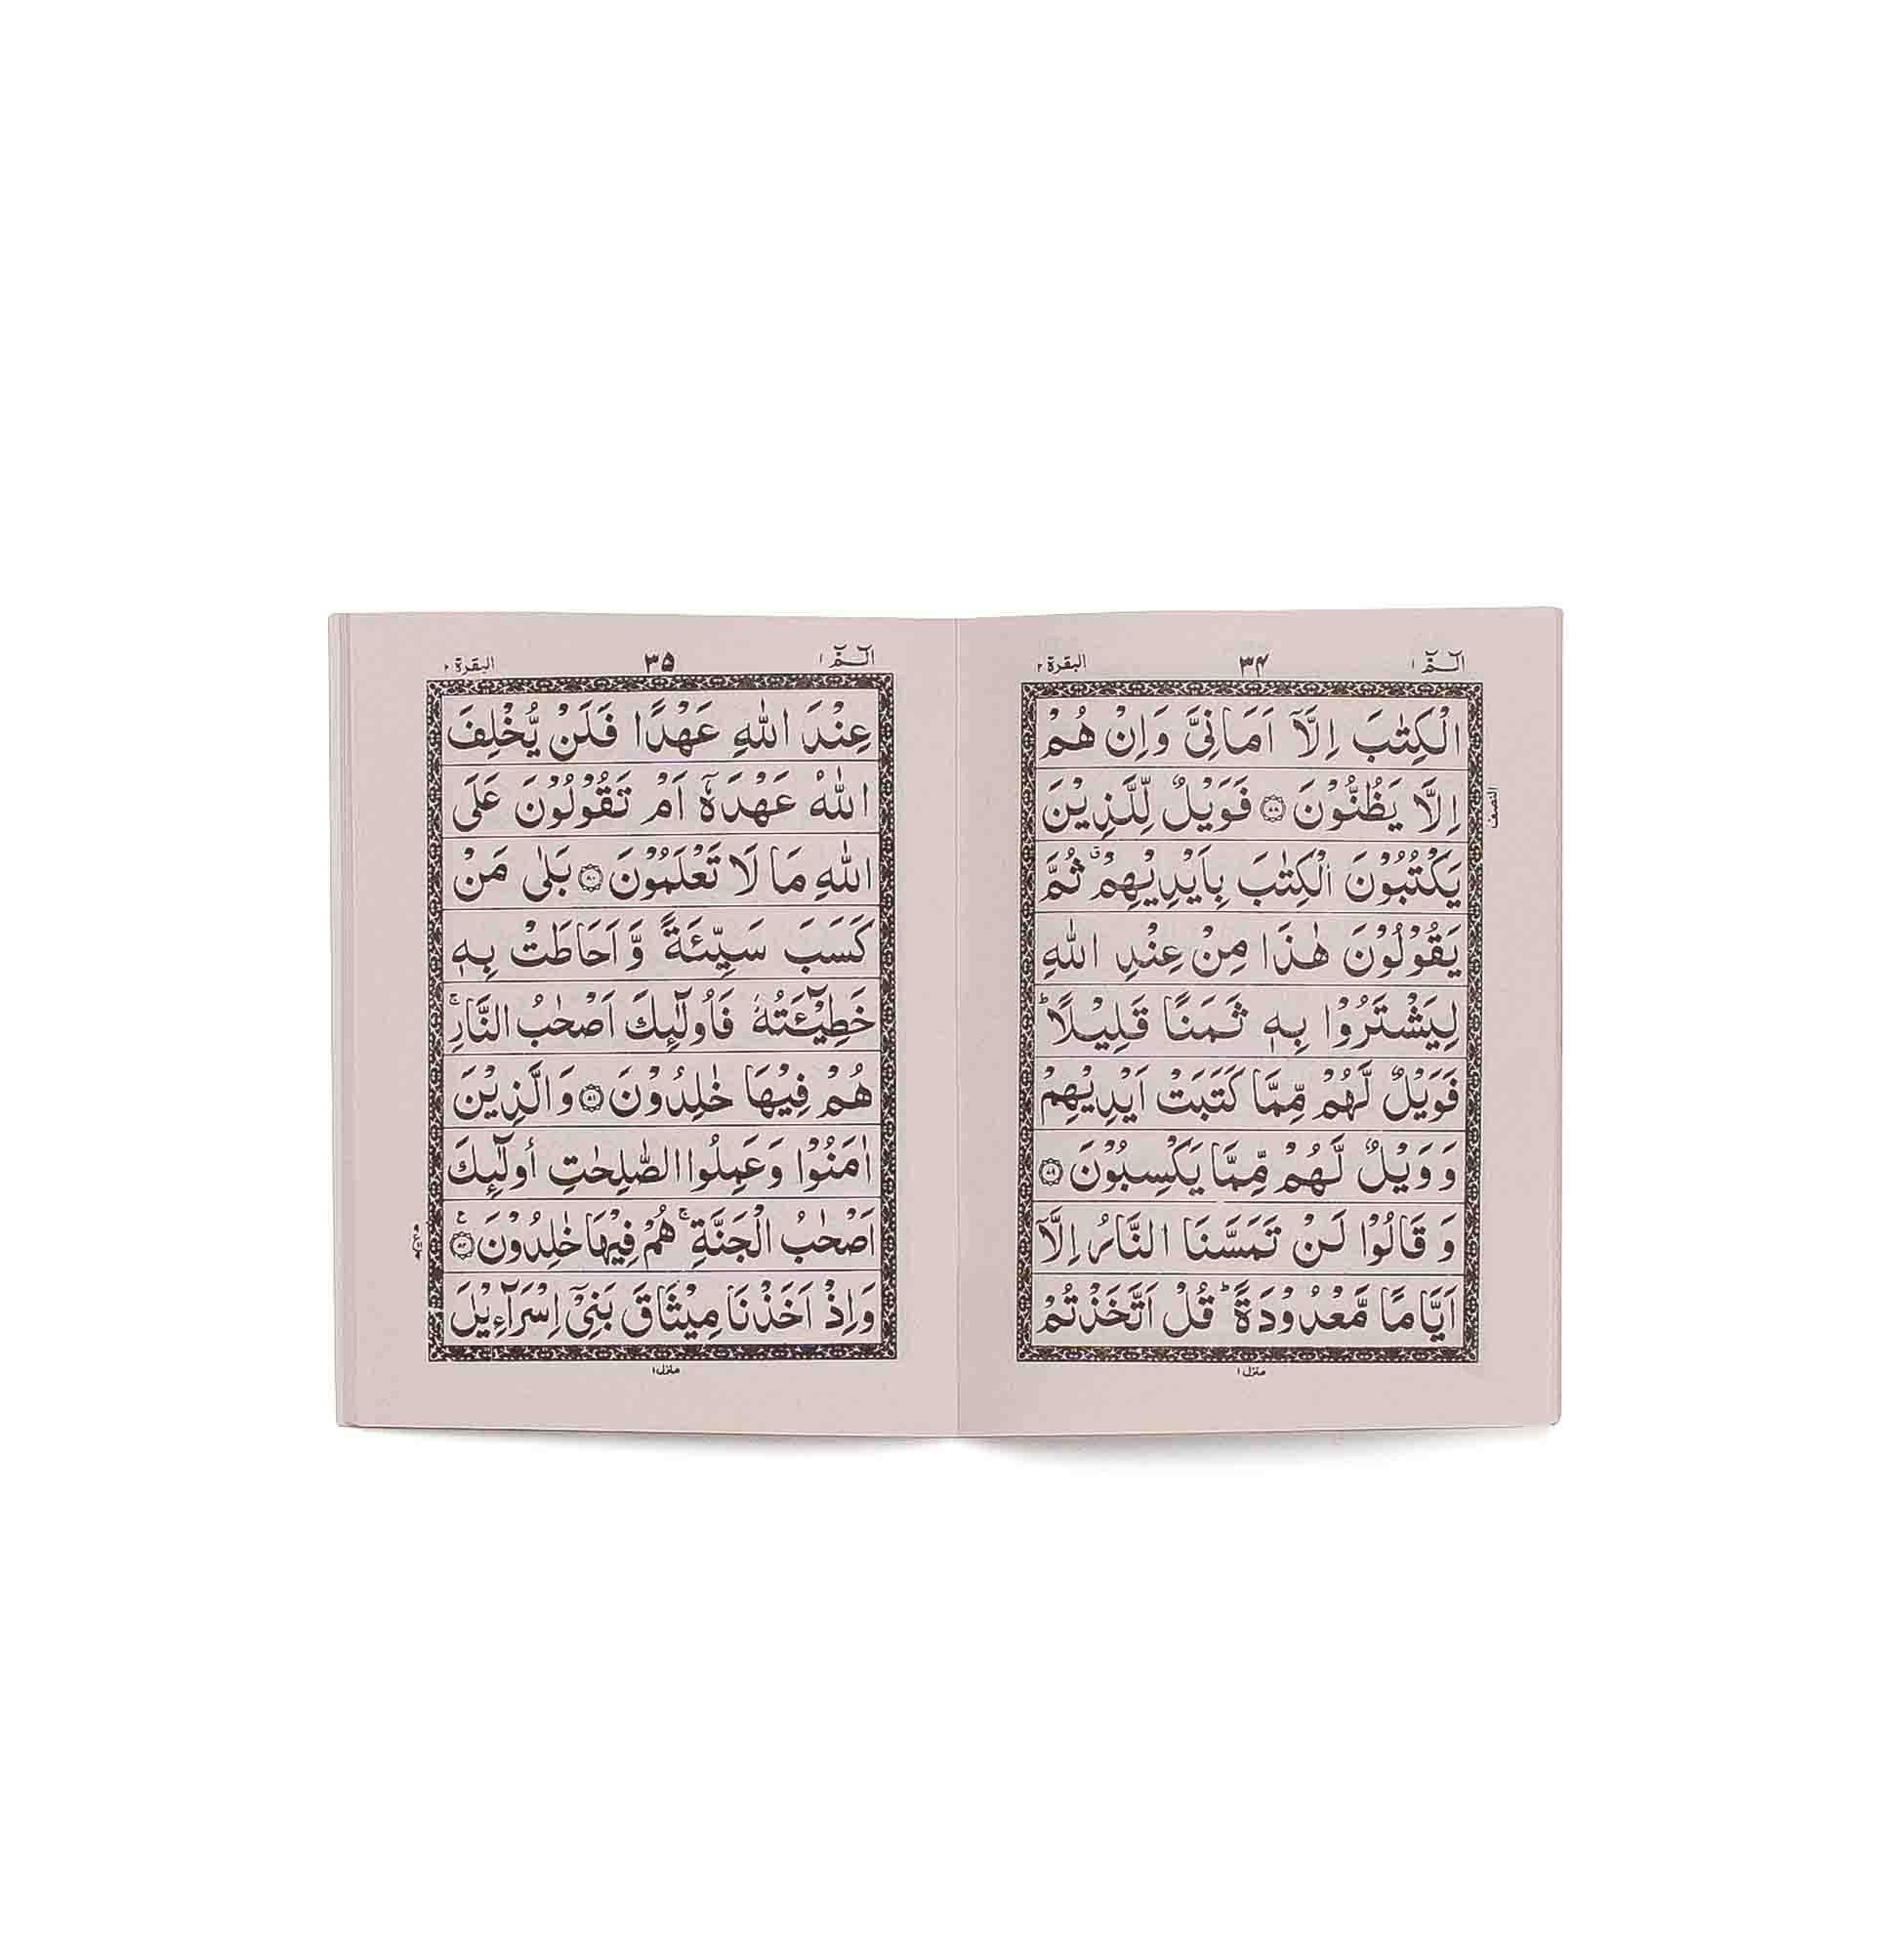 الٓـمّٓ ١ ٣۴ البقرة ٢
الْكِتٰبَ اِلَّآ اَمَانِيَّ وَاِنْ هُمْ
اِلَّا يَظُنُّوْنَ ۝٧٨ فَوَيْلٌ لِّلَّذِيْنَ
النصف
يَكْتُبُوْنَ الْكِتٰبَ بِاَيْدِيْهِمْ ۗ ثُمَّ
يَقُوْلُوْنَ هٰذَا مِنْ عِنْدِ اللّٰهِ
لِيَشْتَرُوْا بِهٖ ثَمَنًا قَلِيْلًا ؕ
فَوَيْلٌ لَّهُمْ مِّمَّا كَتَبَتْ اَيْدِيْهِمْ
وَوَيْلٌ لَّهُمْ مِّمَّا يَكْسِبُوْنَ ۝٧٩
وَ قَالُوْا لَنْ تَمَسَّنَا النَّارُ اِلَّآ
اَيَّامًا مَّعْدُوْدَةً ؕ قُلْ اَتَّخَذْتُمْ
منزل ١
الٓـمّٓ ١ ٣۵ البقرة ٢
عِنْدَ اللّٰهِ عَهْدًا فَلَنْ يُّخْلِفَ
اللّٰهُ عَهْدَهٗٓ اَمْ تَقُوْلُوْنَ عَلَى
اللّٰهِ مَا لَا تَعْلَمُوْنَ ۝٨٠ بَلٰى مَنْ
كَسَبَ سَيِّئَةً وَّ اَحَاطَتْ بِهٖ
خَطِيْٓـَٔتُهٗ فَاُولٰٓئِكَ اَصْحٰبُ النَّارِ ۚ
هُمْ فِيْهَا خٰلِدُوْنَ ۝٨١ وَالَّذِيْنَ
اٰمَنُوْا وَعَمِلُوا الصّٰلِحٰتِ اُولٰٓئِكَ
اَصْحٰبُ الْجَنَّةِ ۚ هُمْ فِيْهَا خٰلِدُوْنَ ۝٨٢
وَاِذْ اَخَذْنَا مِيْثَاقَ بَنِيْٓ اِسْرَآءِيْلَ
منزل ١